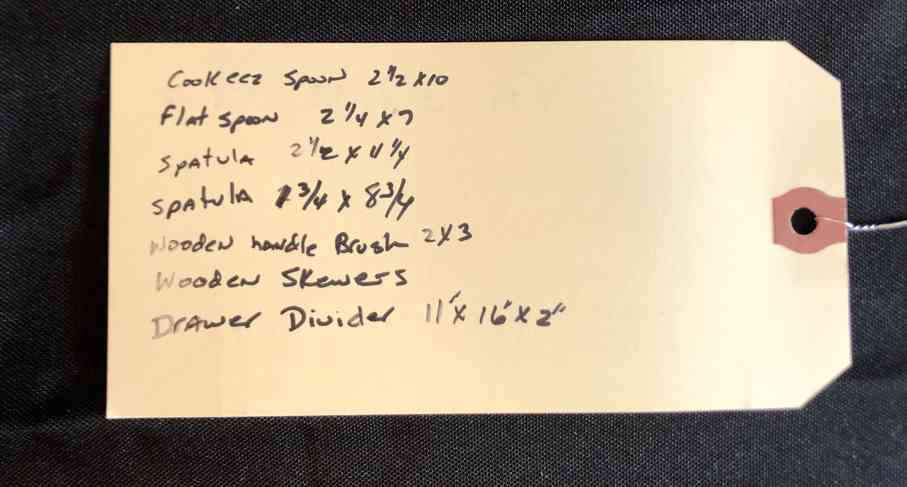 Cookeez Spoon 2 1/2 x 10
Flat spoon 2 1/4 x 7
Spatula 2 1/2 x 11 1/4
Spatula 1 3/4 x 8 3/4
Wooden handle Brush 2x3
Wooden Skewers
Drawer Divider 11" x 16" x 2"